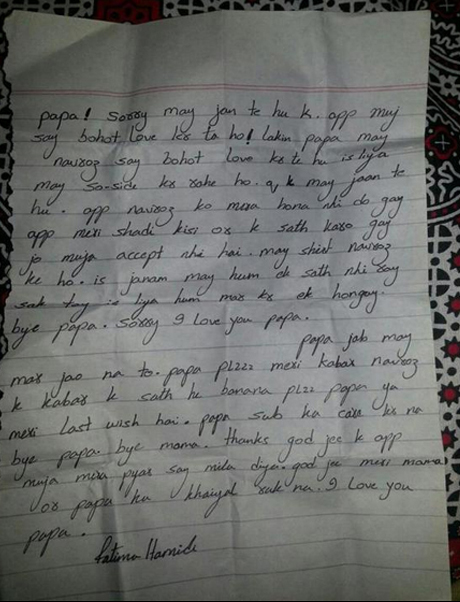 papa! sorry may jan te hu k. app muj
say bohot love kr ta ho! lakin papa may
navroz say bohot love kr te hu is liya
may so-side kr rahe ho. q, k may jaan te
hu. app navroz ko mera hona nhi do gay
app meri shadi kisi or k sath karo gay
jo muja accept nhi hai. may shirf navroz
ke ho. is janam may hum ek sath nhi ray
sak tay is liya hum mar kr ek hongay.
bye papa. sorry I love you papa.
papa jab may
mar jao na to. papa plzzz meri kabar navroz
k kabar k sath he banana plzz papa ya
meri last wish hai. papa sub ka care kr na
bye papa. bye mama. thanks god jee k app
muja mira pyar say mila diya. god jee meri mama
or papa ka khaiyal rak na. I love you
papa.
fatima Hamid